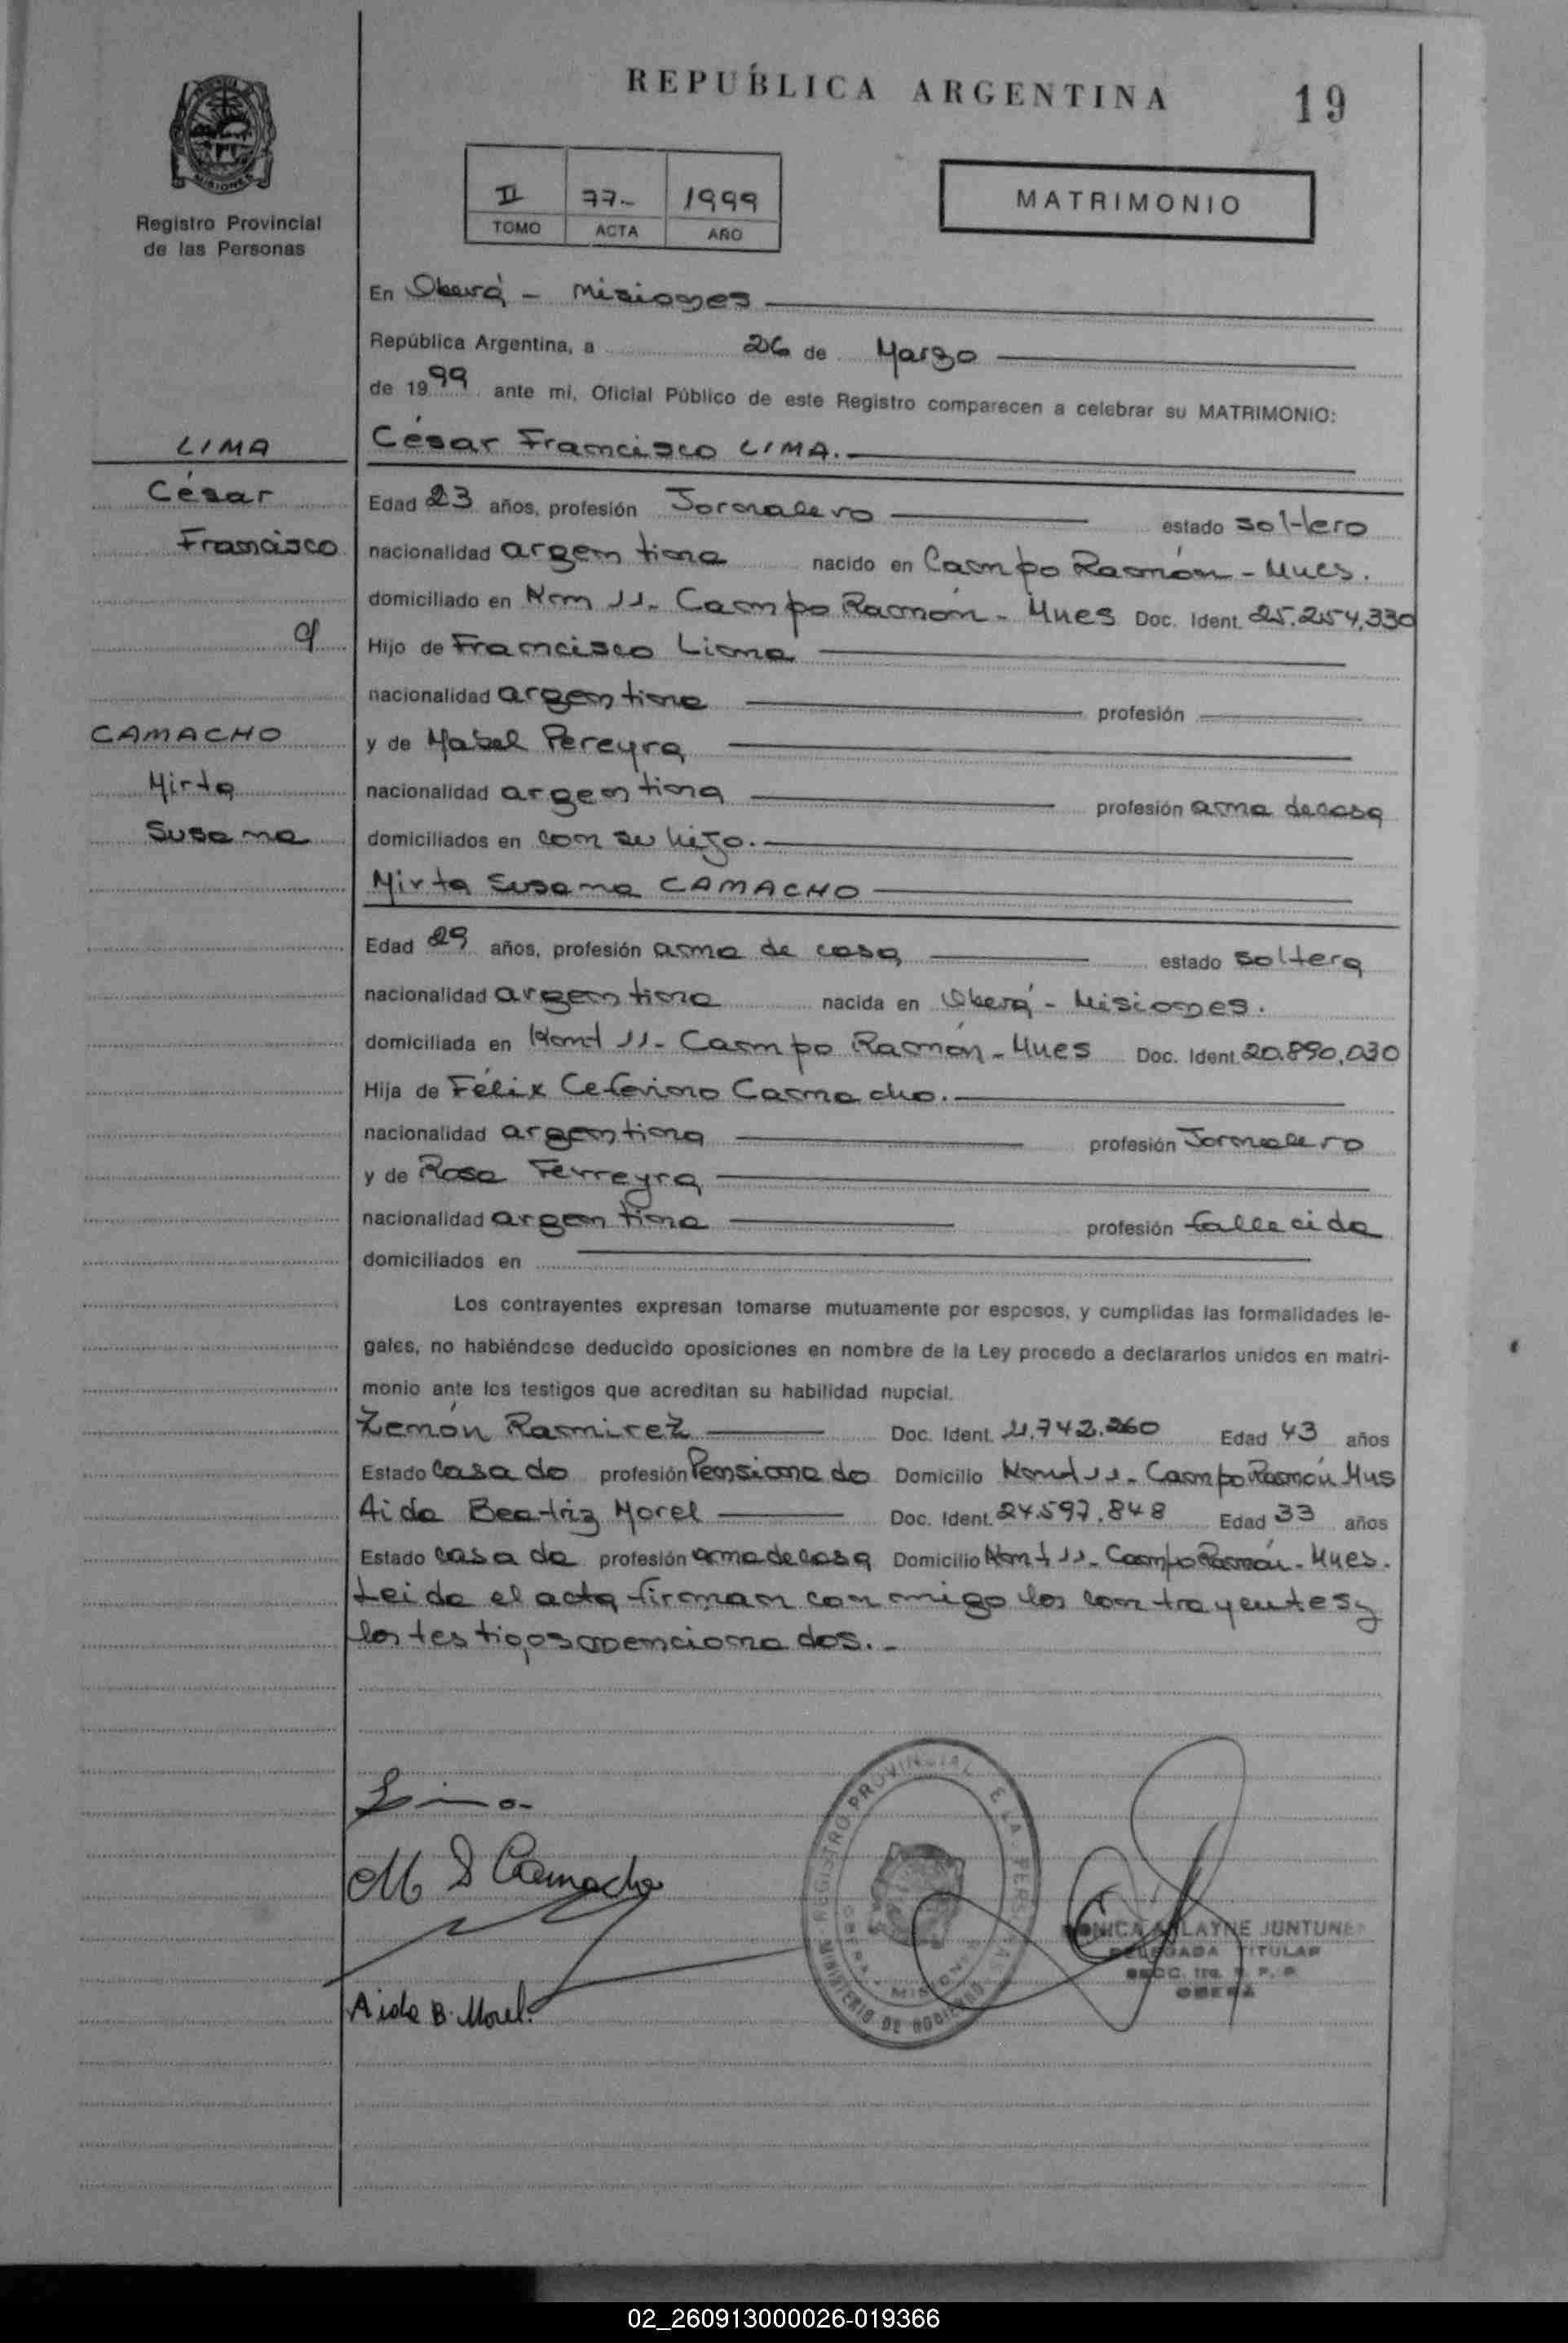 REPUBLICA ARGENTINA
19
Registro Provincial
de las Personas
II 77.- 1999
TOMO ACTA AÑO
MATRIMONIO
En Oberá - Misiones
República Argentina, a 26 de Marzo
de 1999 ante mi, Oficial Público de este Registro comparecen a celebrar su MATRIMONIO:
LIMA
César
Francisco
c/
CAMACHO
Mirta
Susana
César Francisco LIMA.
Edad 23 años, profesión Jornalero estado soltero
nacionalidad argentina nacido en Campo Ramón - Mnes.
domiciliado en Km 11 - Campo Ramón - Mnes Doc. Ident. 25.254.330
Hijo de Francisco Lima
nacionalidad argentina profesión
y de Mabel Pereyra
nacionalidad argentina profesión ama de casa
domiciliados en con su hijo.
Mirta Susana CAMACHO
Edad 29 años, profesión ama de casa estado soltera
nacionalidad argentina nacida en Oberá - Misiones.
domiciliada en 11 - Campo Ramón - Mnes Doc. Ident. 20.890.030
Hija de Félix Ceferino Camacho.
nacionalidad argentina profesión Jornalero
y de Rosa Ferreyra
nacionalidad argentina profesión fallecida
domiciliados en
Los contrayentes expresan tomarse mutuamente por esposos, y cumplidas las formalidades le-
gales, no habiéndose deducido oposiciones en nombre de la Ley procedo a declararlos unidos en matri-
monio ante los testigos que acreditan su habilidad nupcial.
Zenón Ramirez Doc. Ident. 11.742.260 Edad 43 años
Estado casado profesión Pensionado Domicilio 11 - Campo Ramón Mns
Aida Beatriz Morel Doc. Ident. 24.597.848 Edad 33 años
Estado casada profesión ama de casa Domicilio 11 - Campo Ramón - Mnes.
Leida el acta firman conmigo los contrayentes y
los testigos mencionados.-
Lima
M S Camacho
Aida B. Morel.
REGISTRO PROVINCIAL E LA PERSONAS
OBERA - MISIONES
MINISTERIO DE GOBIERNO
JUNTUNEN
DELEGADA TITULAR
SECC. 1ra. R. P. P.
OBERA
02_260913000026-019366